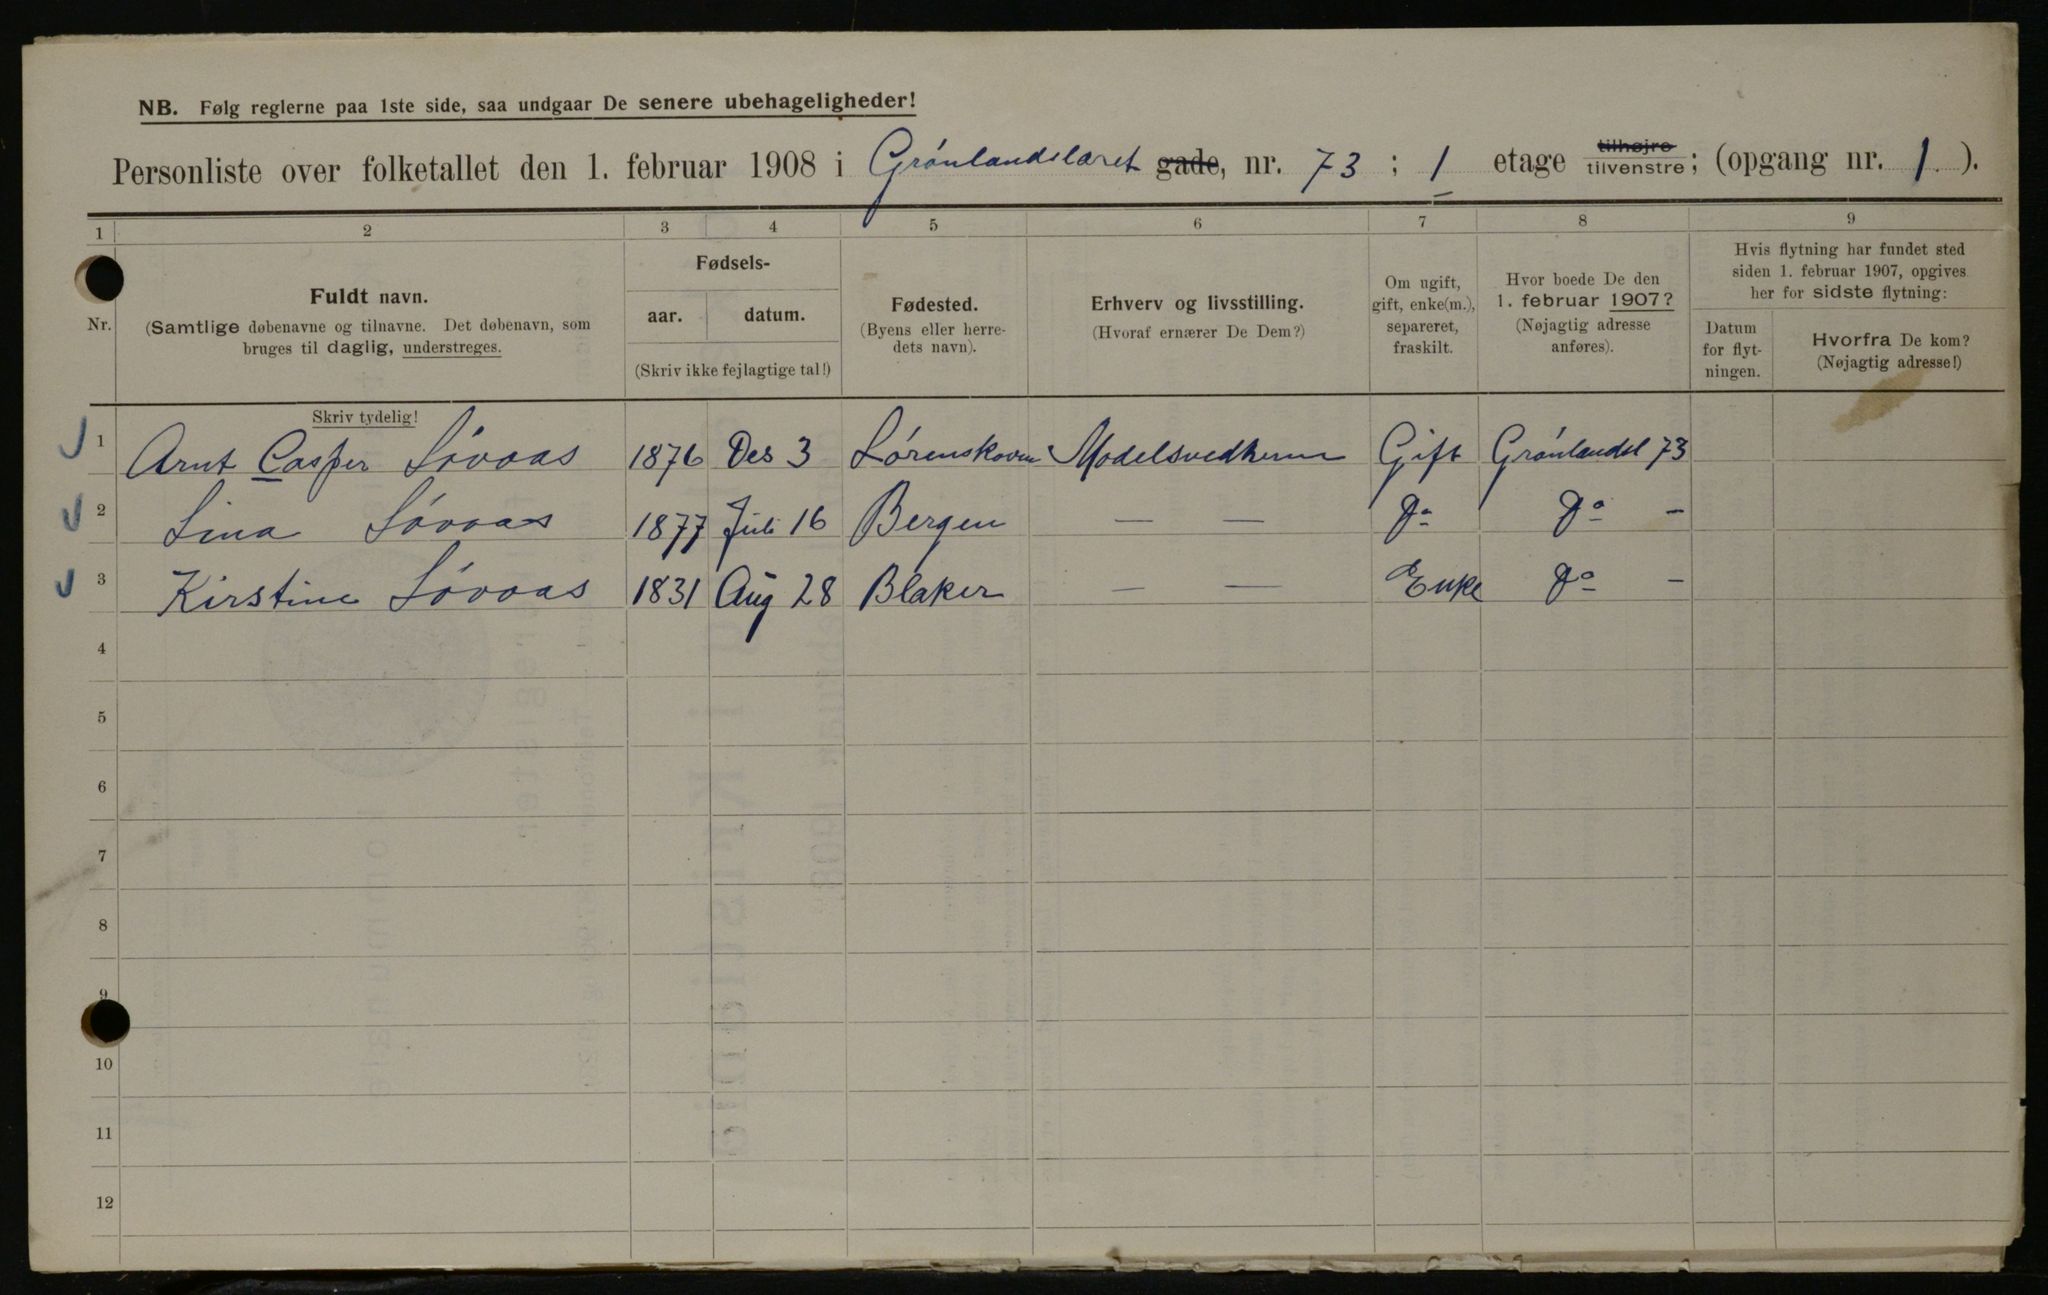 NB. Følg reglerne paa 1ste side, saa undgaar De senere ubehageligheder!
Personliste over folketallet den 1. februar 1908 i Grønlandsleret gade, nr. 73 ; 1 etage tilhøjre tilvenstre; (opgang nr. 1. ).
1 2 3 4 5 6 7 8 9
Nr.
Fuldt navn.
(Samtlige døbenavne og tilnavne. Det døbenavn, som
bruges til daglig, understreges.
Skriv tydelig!
Fødsels-
aar. datum.
(Skriv ikke fejlagtige tal!)
Fødested.
(Byens eller herre-
dets navn).
Erhverv og livsstilling.
(Hvoraf ernærer De Dem?)
Om ugift,
gift, enke(m.),
separeret,
fraskilt.
Hvor boede De den
1. februar 1907?
(Nøjagtig adresse
anføres).
Hvis flytning har fundet sted
siden 1. februar 1907, opgives
her for sidste flytning:
Datum
for flyt-
ningen.
Hvorfra De kom?
(Nøjagtig adresse!)
1 Arnt Casper Søvaas 1876 Des 3 Lørenskoven Gift Grønlandsl 73
2 Lina Søvaas 1877 Juli 16 Bergen — — Do Do -
3 Kirstine Søvaas 1831 Aug 28 Blaker — — Enke Do -
4
5
6
7
8
9
10
11
12